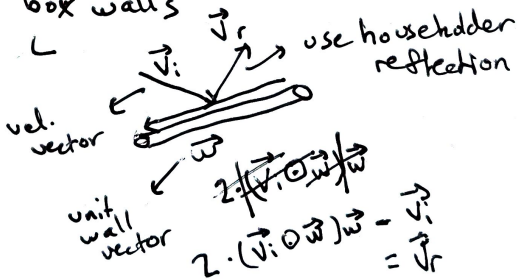 box walls
V⃗r
use householder
reflection
V⃗i
vel.
vector
w⃗
unit
wall
vector
2·(V⃗i ⊙ w⃗)w⃗
2·(V⃗i ⊙ w⃗)w⃗ - V⃗i
= V⃗r